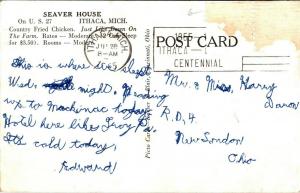 SEAVER HOUSE
On U. S. 27 ITHACA, MICH.
Country Fried Chicken. Just Like Down On
The Farm. Rates - Moderate
for $3.50). Rooms - Modern
ITHACA
8-AM
1855
ITHACA
CENTENNIAL
POST CARD
This is where we slept
Wed. night, Heading
up to Mackinac today
Hotel here like Troy Pa.
It's cold today,
Edward
Mr. & Miss Harry
R.D. 4
New London
Ohio
Cincinnati, Ohio